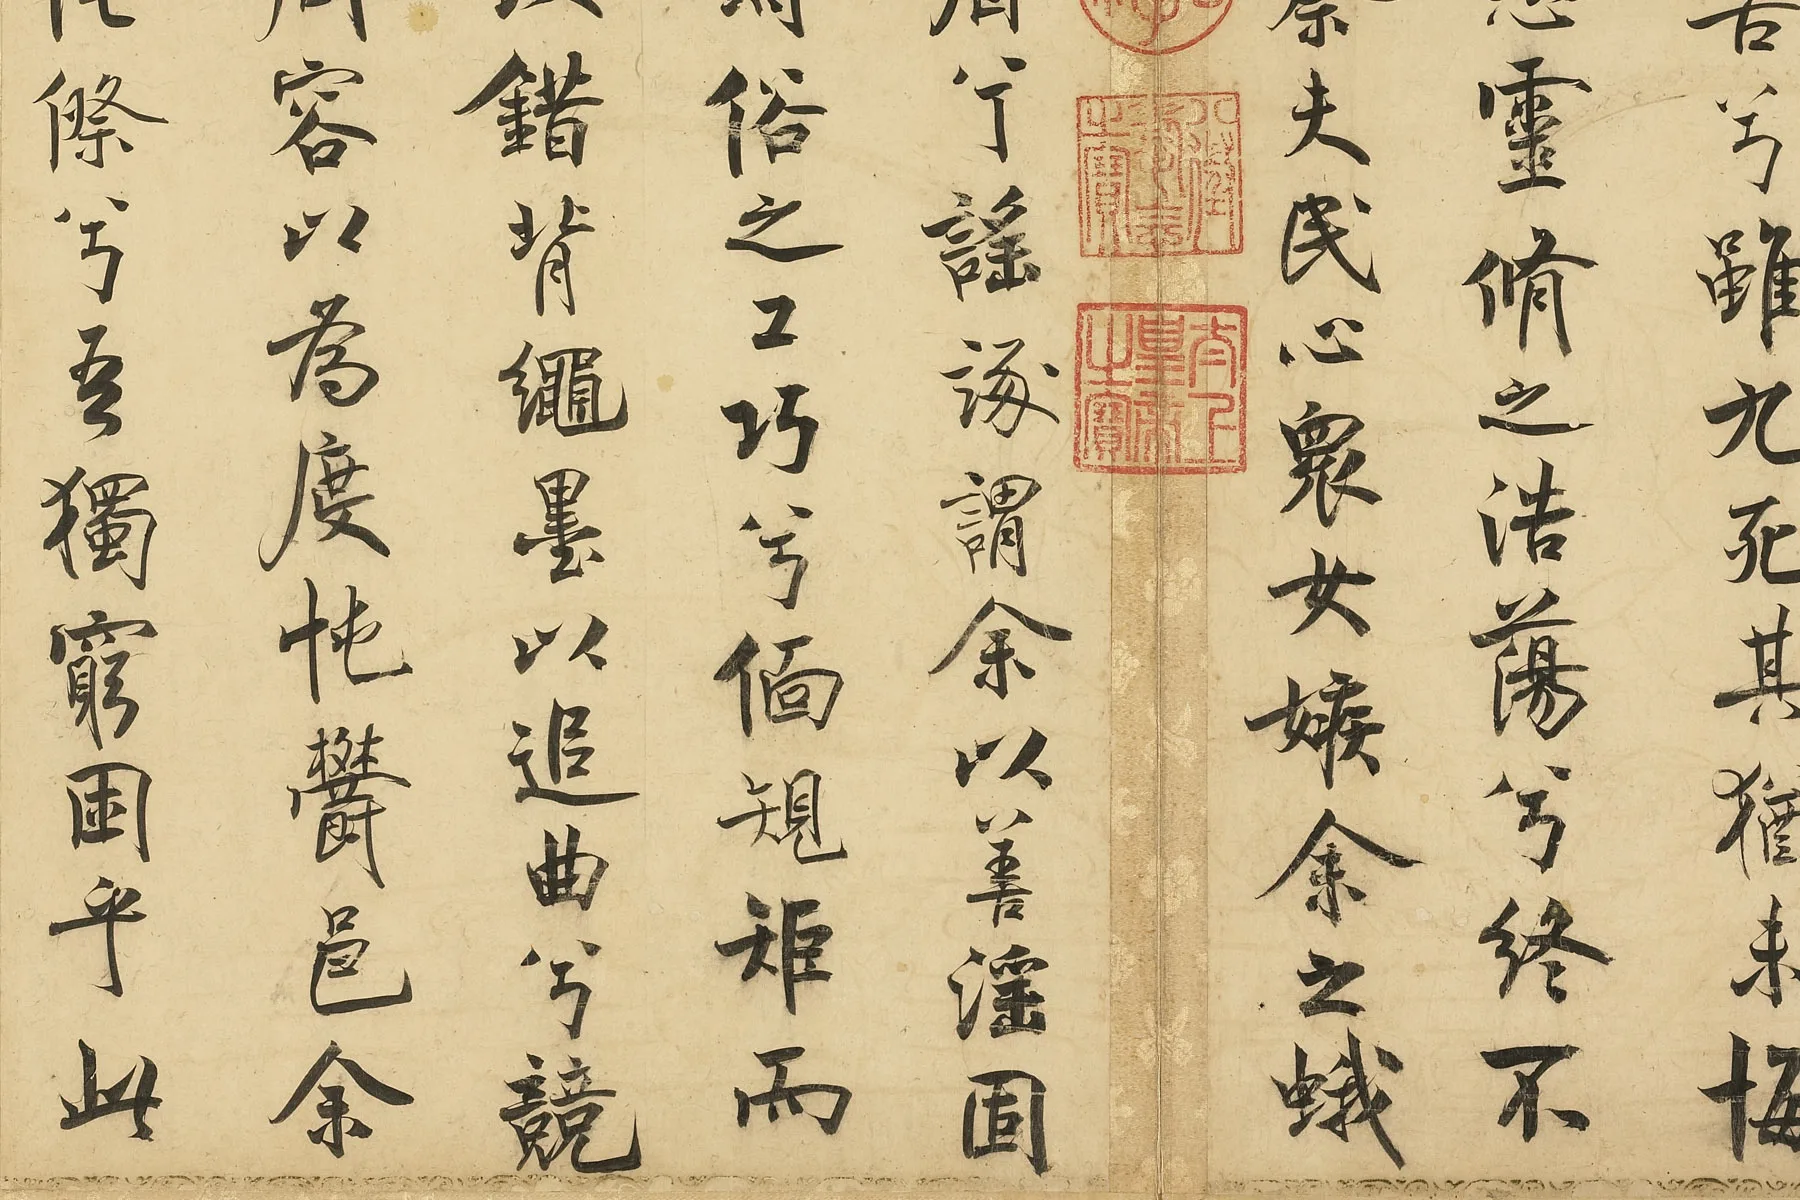 兮雖九死其猶未悔
靈脩之浩蕩兮終不
察夫民心衆女嫉余之蛾
八徵耄念之寶
太上皇帝之寶
眉兮謠諑謂余以善淫固
俗之工巧兮偭規矩而
錯背繩墨以追曲兮競
周容以為度忳鬱邑余
傺兮吾獨窮困乎此